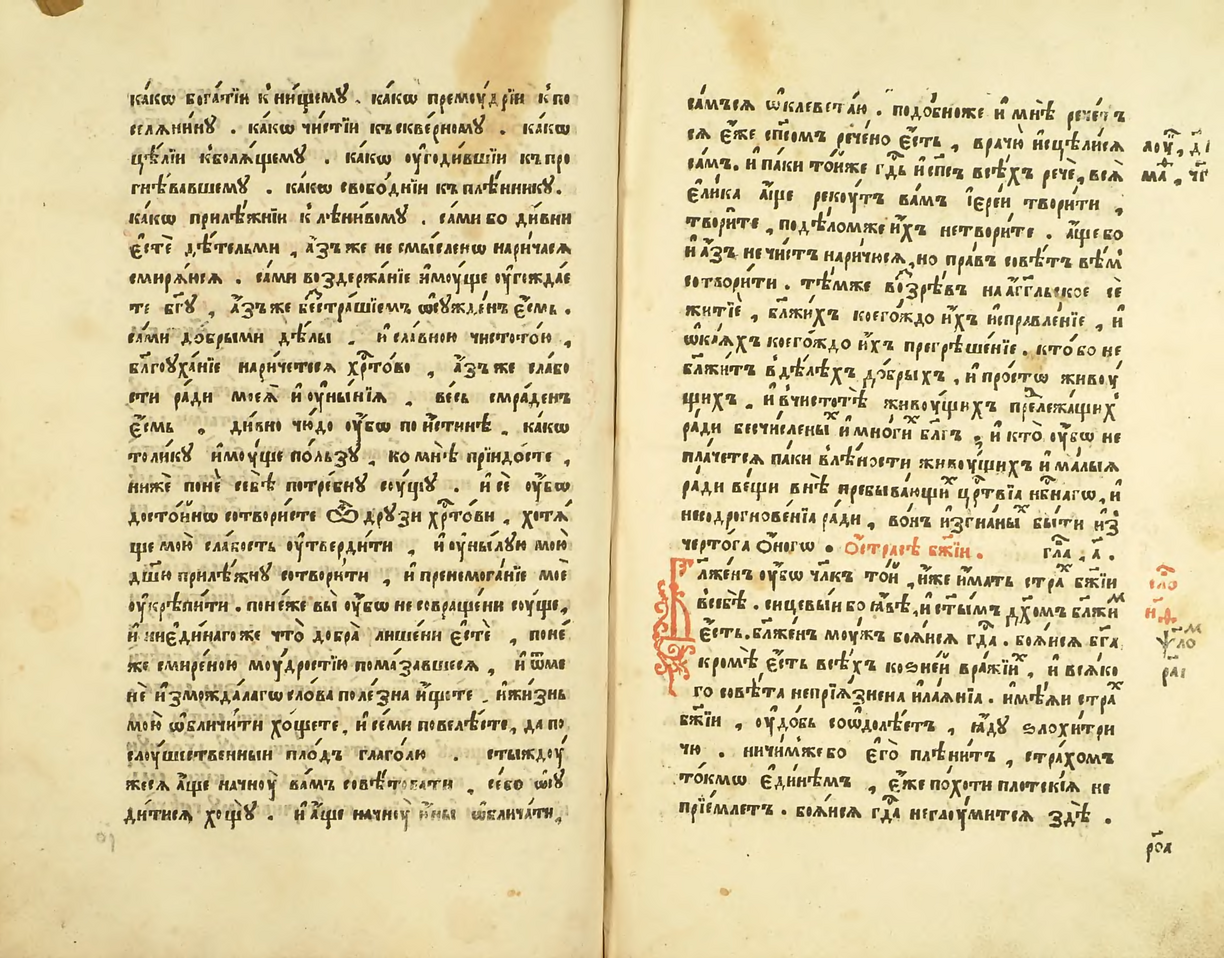 ка́кѡ бога́тїи к ни́щемꙋ . ка́кѡ премоу́дрїи к по
селѧ́нинꙋ . ка́кѡ чи́стїи къ скве́рномꙋ . ка́кѡ
цѣ́лїи к болѧ́щемꙋ . ка́кѡ оу҆годи́вшїи къ про
гнѣ́вавшемꙋ . ка́кѡ свобо́днїи къ плѣ́нникꙋ .
ка́кѡ прилѣ́жнїи к лѣни́вомꙋ . са́ми бо ди́вни
є҆стѐ дѣ́тельми , а҆́зъ же не смы́сленѡ нарича́сѧ
смирѧ́юсѧ . са́ми воздержа́нїе и҆мꙋ́ще оу҆гожда́е
те бг҃ꙋ , а҆́зъ же бестра́шїемъ ѡ҆сꙋжде́нъ є҆́смь .
са́ми до́брыми дѣ́лы , и҆ сла́вною чистото́ю ,
бл҃гоуха́нїе нарича́етесѧ хрⷭ҇то́во , а҆́зъ же сла́бо
сти ра́ди моеѧ̀ и҆ оу҆ны́нїѧ . ве́сь смра́денъ
є҆́смь . ди́вно чю́до оу҆́бѡ пои́стинѣ . ка́кѡ
толи́кꙋ и҆моу́ще по́льзꙋ , ко мнѣ̀ прїидо́сте ,
нижѐ понѐ себѣ̀ потре́бнꙋ сꙋ́щꙋ . и҆ сѐ оу҆́бѡ
досто́йнѡ сотвори́сте ꙮ дрꙋ́зи хрⷭ҇то́ви , хотѧ́
ще мою̀ сла́бость оу҆тверди́ти , и҆ оу҆ны́лꙋю мою̀
дш҃ꙋ прилѣ́жнꙋ сотвори́ти , и҆ пренемога́нїе моѐ
оу҆крѣпи́ти . поне́же вы̀ оу҆́бѡ не совраще́ни сꙋ́ще ,
и҆ ни є҆ди́наго же что̀ добра̀ лише́ни є҆стѐ , поне́
же смире́ною моу́дростїю пома́завшесѧ , и҆ ѿ ме
нѐ и҆зможда́лагѡ сло́ва поле́зна и҆́щете . и҆ жи́знь
мою̀ ѡ҆бличи́ти хо́щете , и҆ се́ми повелѣ́сте , да по
слоу́шственныи пло́дъ глаго́лю . стыждоу́
жесѧ а҆́ще начноу̀ ва́мъ совѣ́товати , себо ѡ҆сꙋ
ди́тисѧ хощꙋ̀ . и҆ а҆́ще начноу̀ и҆́ны ѡ҆блича́ти ,
са́мъ сѧ ѡ҆клевета́ю . подо́бно же и҆ мнѣ̀ рече́тъ
сѧ є҆́же сп҃сомъ рече́но є҆́сть , врачю̀ и҆сцѣли́сѧ
са́мъ . и҆ па́ки то́йже гдⷭ҇ь и҆ сп҃съ всѣ́хъ речѐ , всѧ̀
є҆ли́ка а҆́ще рекоу́тъ ва́мъ і҆ере́и твори́ти ,
твори́те , по дѣло́мже и҆́хъ не твори́те . а҆́ще бо
и҆ а҆́зъ не чи́стъ нарича́юсѧ , но пра́въ совѣ́тъ вѣ́мⸯ
сотвори́ти . тѣ́мже возрѣ́въ на а҆́гг҃льское се
житїѐ , бл҃жи́хъ коего́ждо и҆́хъ и҆справле́нїе , и҆
ѡ҆каѧ́хъ коего́ждо и҆́хъ прегрѣше́нїе . кто́ бо не
бл҃жи́тъ в дѣ́лѣхъ до́брыхъ , и҆ про́стѡ живоу́
щихъ . и҆ в чистотѣ̀ живоу́щихъ прⷣележа́щихⸯ
ра́ди бесчи́слены́ⷯ и҆ мно́гиⷯ бл҃гъ . и҆ кто̀ оу҆́бѡ не
пла́четсѧ па́ки в лѣ́ности живоу́щихъ и҆ ма́лыѧ
ра́ди ве́щи внѣ̀ пребыва́ющиⷯ црⷭ҇твїа нб҇нагѡ , и҆
несодрогнове́нїа ра́ди , во́нъ и҆зѓнаныⷯ бы́ти и҆з̾
черто́га ѻ҆́ногѡ . Ѻ҆ стра́сѣ бж҃їи . гл҃а . а҃ .
Бл҃же́нъ оу҆́бѡ чл҃къ то́й , и҆́же и҆́мать стра́ⷯ бж҃їи
в себѣ̀ . сицевы́и бо ꙗ҆́вѣ , и҆ ст҃ы́мъ дх҃омъ бл҃жи́ⷨ
є҆́сть . бл҃же́нъ моу́жъ боѧ́исѧ гдⷭ҇а . боѧ́исѧ бг҃а
кромѣ̀ є҆́сть всѣ́хъ ко́зней вра́жїиⷯ , и҆ всѧ́ко
го совѣ́та непрїѧ́знена и҆ лаѧ́нїа . и҆мѣ́ѧи стра́ⷯ
бж҃їи , оу҆до́бь соѡдолѣ́етъ , ꙗ҆́дꙋ ѕлохи́три
чю . ничи́мже бо є҆го̀ плѣни́тъ , стра́хомъ
то́кмѡ є҆ди́нѣмъ , є҆́же по́хоти пло́тскїѧ не
прїе́млетъ . боѧ́исѧ гдⷭ҇а не глаоу́митсѧ здѣ̀ .
лоуⷦ҇ , д҃і
маⷴ , ч҃г
сло
н҃ф
ѱⷨло
ра҃і
рѻ҃а